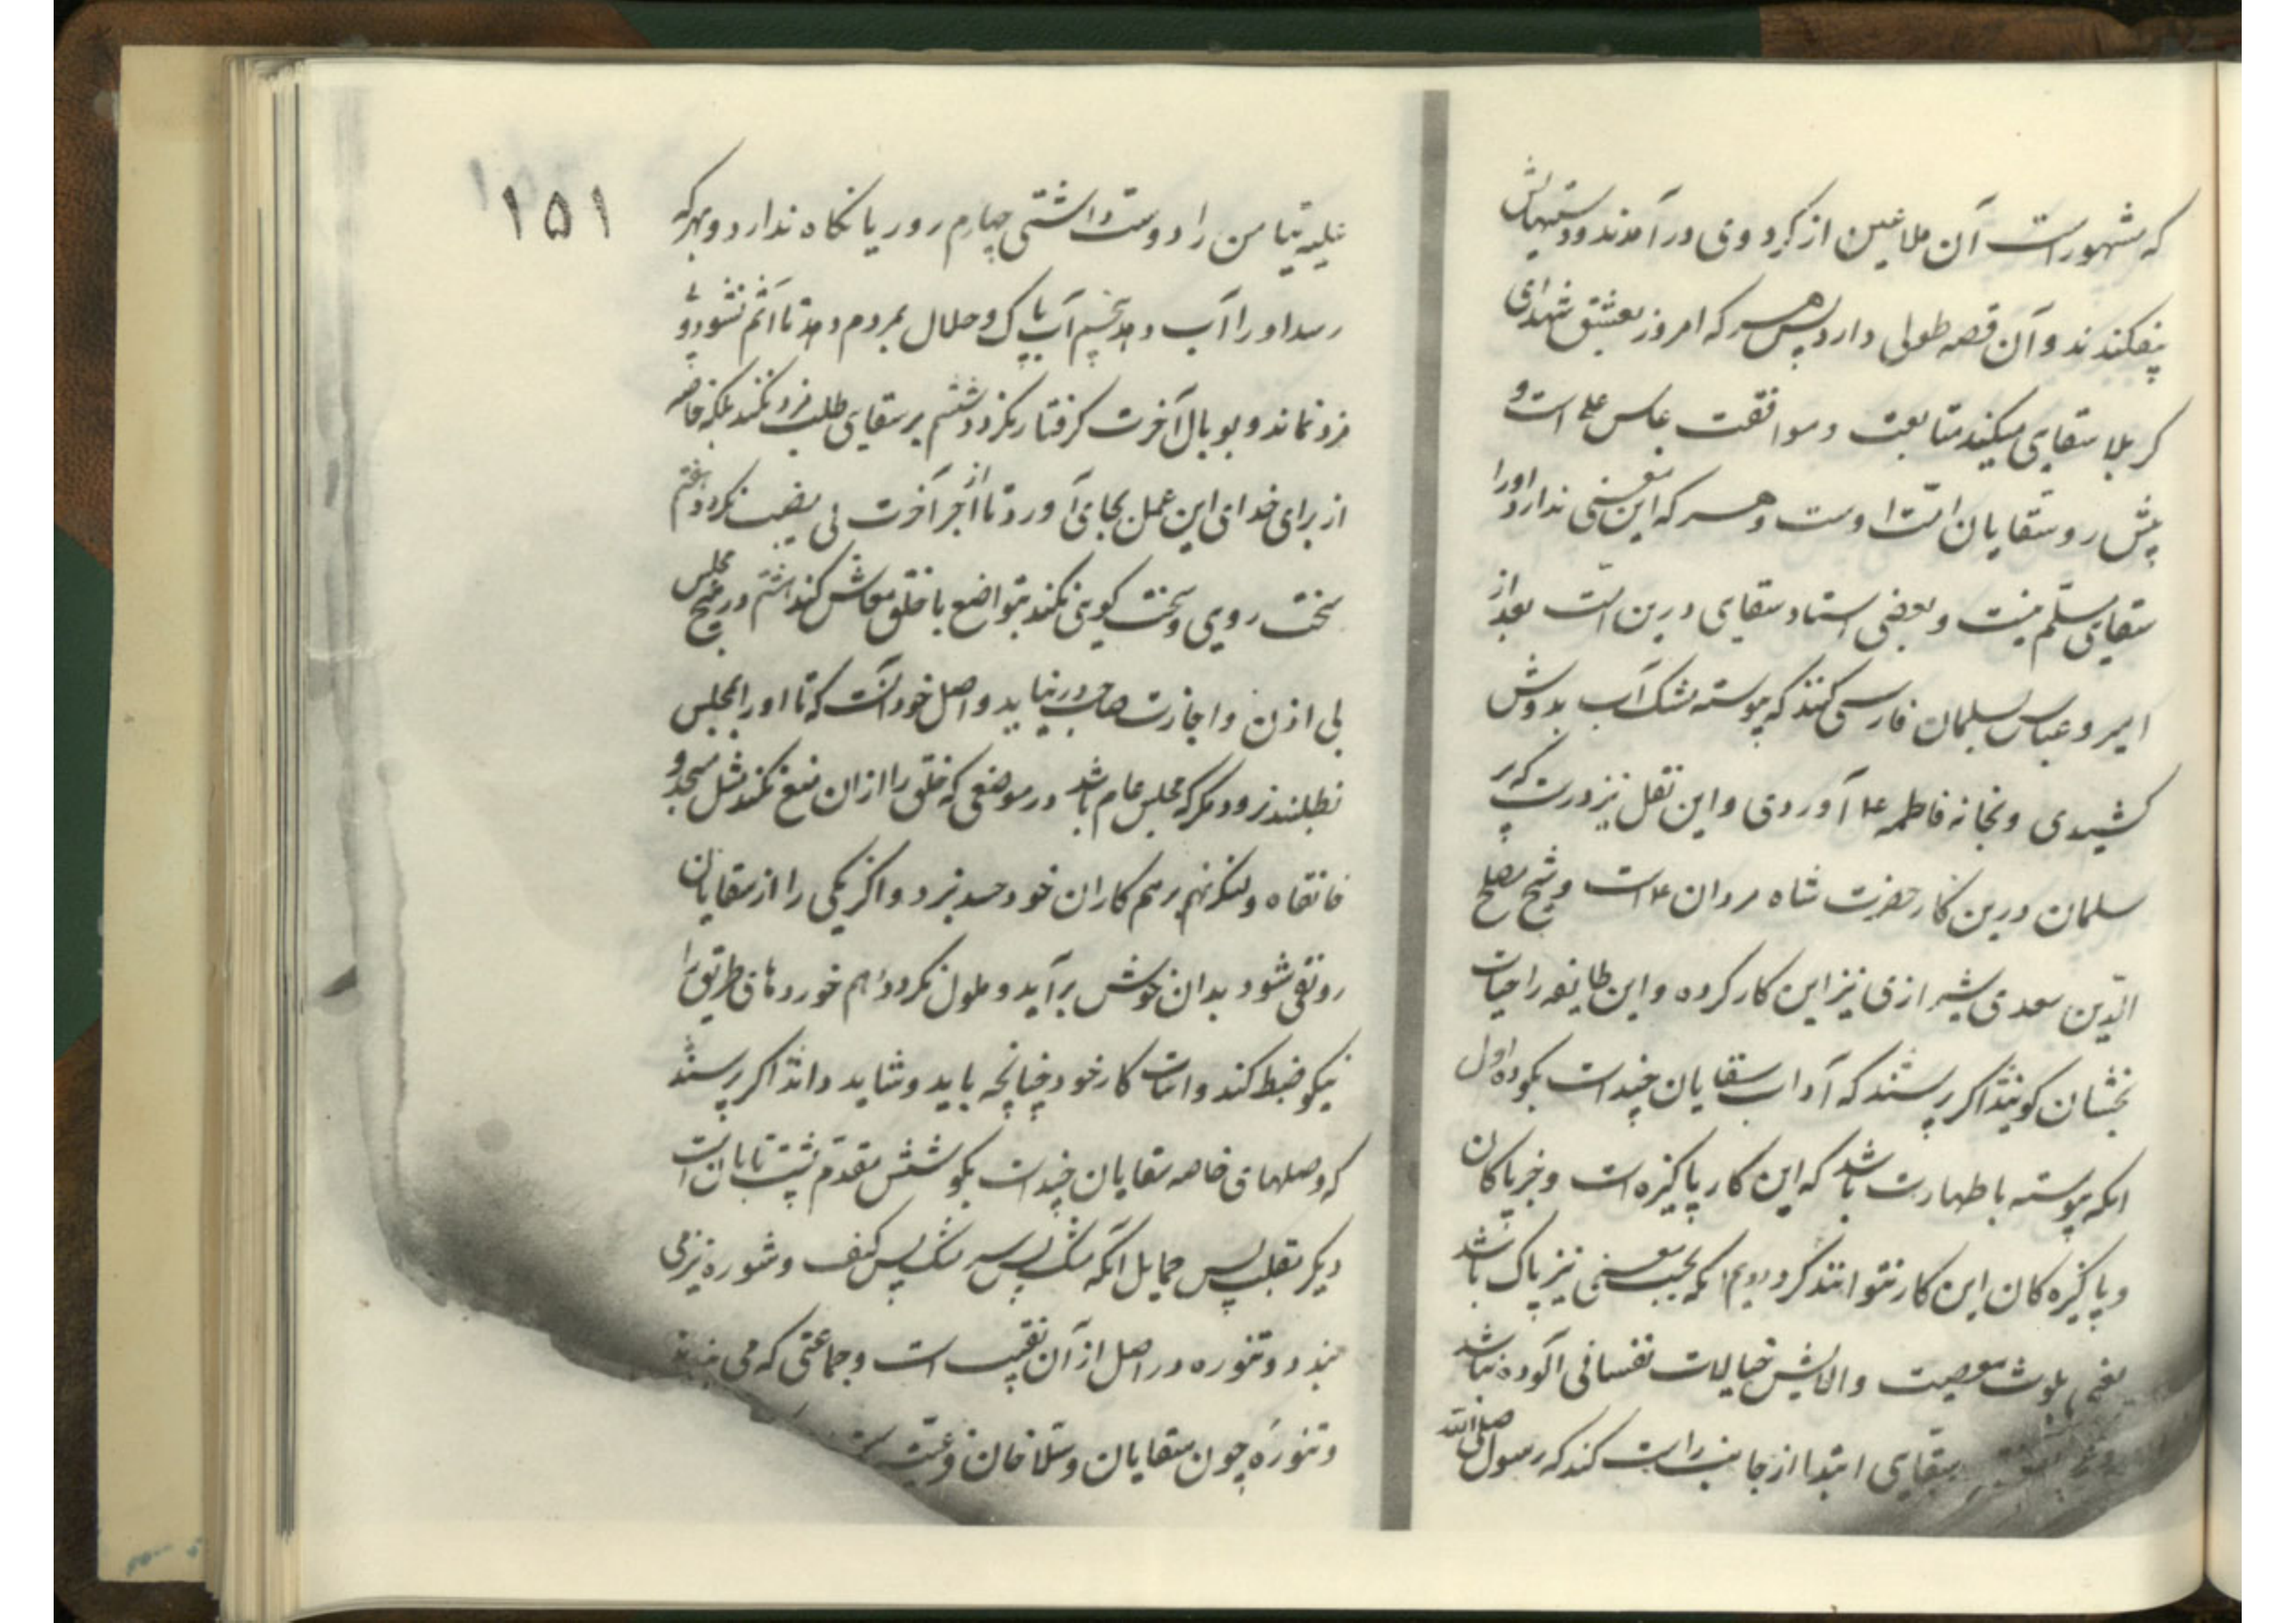 که مشهورست آن ملاعین از گرد وی در آمدند و دستهایش
بیفکندند و آن قصه طولی دارد پس هر که امروز بعشق شهدای
کربلا سقایی میکند متابعت و موافقت عباس علی است و
پیش رو سقایان است اوست و هر که این معنی ندارد او را
سقایی مسلم نیست و بعضی استاد سقایی درین امت بعد از
امیر و عباس سلمان فارسی کنند که پیوسته مشک آب بدوش
کشیدی و بخانه فاطمه ع آوردی و این نقل نیز درست که پیر
سلمان درین کار حضرت شاه مردان ع است و شیخ مصلح
الدین سعدی شیرازی نیز این کار کرده و این طایفه را حیات
بخشان گویند اگر پرسند که آداب سقایان چند است بگو ده اول
انکه پیوسته با طهارت باشد که این کار پاکیزه است و جز پاکان
و پاکیزه کان این کار نتوانند کرد دویم انکه بحسب معنی نیز پاک باشد
یعنی بلوث معصیت و الایش خیالات نفسانی آلوده نباشد
سقایی ابتدا از جانب راست کند که رسول صلی الله
۱۵۱
علیه تیامن را دوست داشتی چهارم روی ریا نگاه ندارد و بهر که
رسد او را آب دهد پنجم آب پاک و حلال بمردم دهد تا آثم نشود و
فرو نماند و بوبال آخرت گرفتار نگردد ششم بر سقایی طلب مزد نکند بلکه خاصه
از برای خدای این عمل بجای آورد تا از اجر آخرت بی نصیب نگردد هفتم
سخت رویی و سخت گویی نکند بتواضع با خلق معاش کند هشتم در هیچ مجلس
بی اذن و اجازت صاحب در نیاید و اصل خود آنست که تا او را بمجلس
نطلبند نرود مگر که مجلس عام باشد در موضعی که خلق را از ان منع نکنند مثل مسجد و
خانقاه و لنگر نهم بر هم کاران خود حسد نبرد و اگر یکی را از سقایان
رونقی شود بدان خوش برآید و ملول نگردد دهم خورده های طریق را
نیکو ضبط کند و اثبات کار خود چنانچه باید و شاید داند اگر پرسند
که وصلهای خاصه سقایان چند است بگو شش مقدم
دیگر حمایل انکه مشک پس کتف و
بندد و تنوره در اصل از آن نقیب است و جماعتی که می بندند
و تنوره چون سقایان و سلاخان